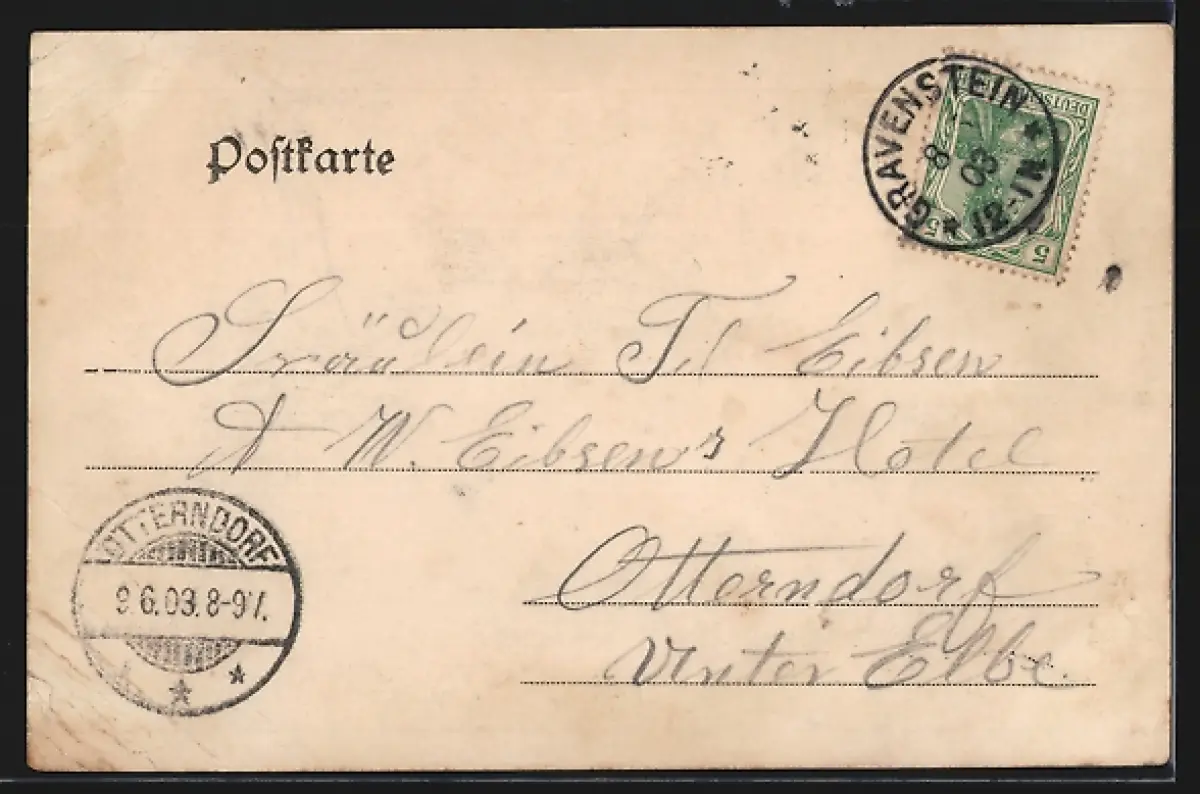 Postkarte
GRAVENSTEIN
8 03
12-1N
DEUTSCHES
5 5
Fräulein T Eibsen
A W. Eibsen's Hotel
Otterndorf
Unter Elbe.
OTTERNDORF
9.6.03. 8-9V.